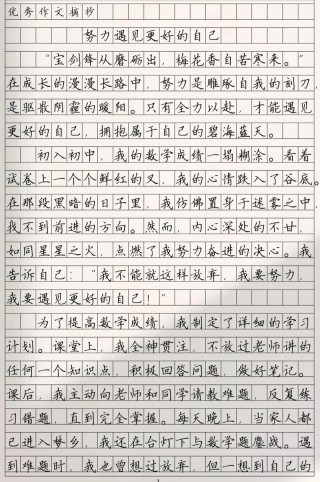 优秀作文摘抄
努力遇见更好的自己
“宝剑锋从磨砺出，梅花香自苦寒来。”
在成长的漫漫长路中，努力是雕琢自我的刻刀，
是驱散阴霾的暖阳。只有全力以赴，才能遇见
更好的自己，拥抱属于自己的碧海蓝天。
初入初中，我的数学成绩一塌糊涂。看着
试卷上一个个鲜红的叉，我的心情跌入了谷底。
在那段黑暗的日子里，我仿佛置身于迷雾之中，
找不到前进的方向。然而，内心深处的不甘，
如同星星之火，点燃了我努力奋进的决心。我
告诉自己：“我不能就这样放弃，我要努力，
我要遇见更好的自己！”
为了提高数学成绩，我制定了详细的学习
计划。课堂上，我全神贯注，不放过老师讲的
任何一个知识点，积极回答问题，做好笔记。
课后，我主动向老师和同学请教难题，反复练
习错题，直到完全掌握。每天晚上，当家人都
已进入梦乡，我还在台灯下与数学题鏖战。遇
到难题时，我也曾想过放弃，但一想到自己的